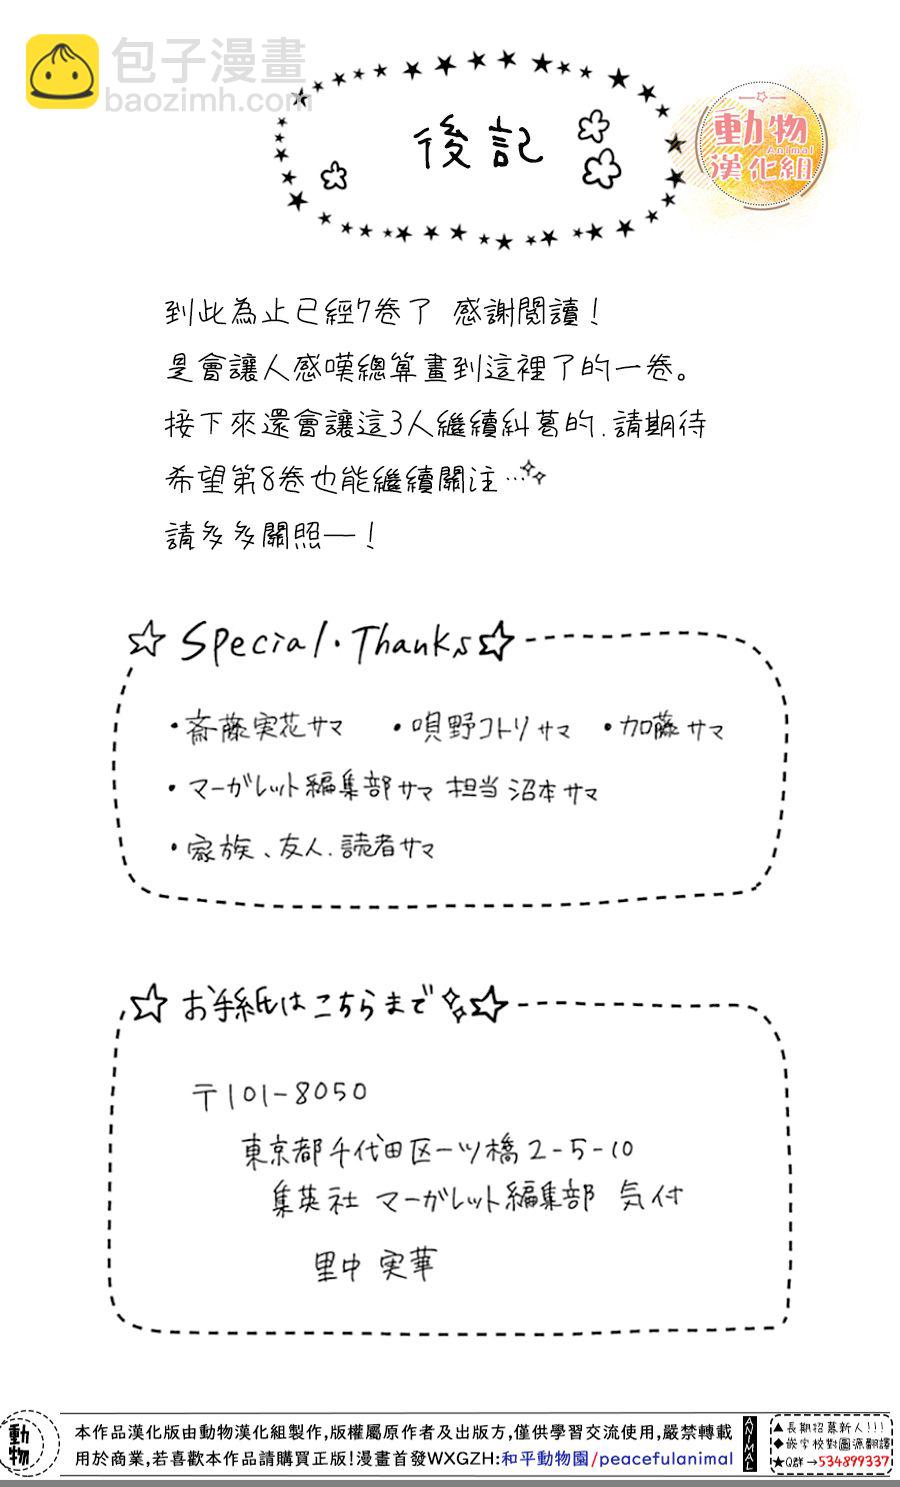 包子漫畫
baozimh.com
後記
動物
Animal
漢化組
到此為止已經7卷了 感謝閲讀！
是會讓人感嘆總算畫到這裡了的一卷。
接下來還會讓這3人繼續糾葛的.請期待
希望第8卷也能繼續關注…
請多多關照—！
☆Special・Thanks☆
・斎藤実花サマ ・唄野コトリサマ ・加藤サマ
・マーガレット編集部サマ 担当 沼本サマ
・家族、友人、読者サマ
☆お手紙はこちらまで☆
〒101-8050
東京都千代田区一ツ橋2-5-10
集英社 マーガレット編集部 気付
里中 実華
動物
本作品漢化版由動物漢化組製作,版權屬原作者及出版方,僅供學習交流使用,嚴禁轉載
用於商業,若喜歡本作品請購買正版!漫畫首發WXGZH:和平動物園/peacefulanimal
ANIMAL
▲長期招募新人!!!
◆嵌字校對圖源翻譯
★Q群→534899337